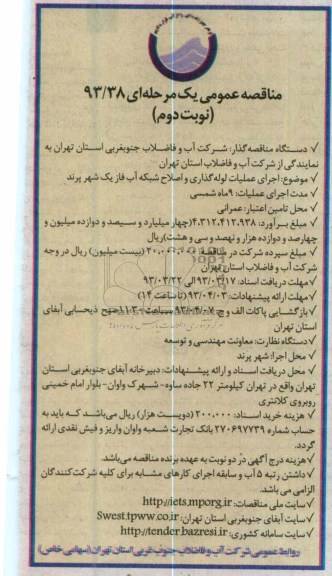 مناقصه عمومی یک مرحله‌ای ۹۳/۳۸
(نوبت دوم)
✓ دستگاه مناقصه‌گذار: شرکت آب و فاضلاب جنوبغربی استان تهران به
نمایندگی از شرکت آب و فاضلاب استان تهران
✓ موضوع: اجرای عملیات لوله‌گذاری و اصلاح شبکه آب فاز یک شهر پرند
✓ مدت اجرای عملیات: ۹ماه شمسی
✓ محل تامین اعتبار: عمرانی
✓ مبلغ برآورد: ۴.۳۱۲.۴۱۲.۹۳۸(چهار میلیارد و سیصد و دوازده میلیون و
چهارصد و دوازده هزار و نهصد و سی و هشت)ریال
✓ مبلغ سپرده شرکت در مناقصه: ۲۰.۰۰۰.۰۰۰ (بیست میلیون) ریال در وجه
شرکت آب و فاضلاب استان تهران
✓ مهلت دریافت اسناد: ۹۳/۰۳/۱۷ الی ۹۳/۰۳/۲۲
✓ مهلت ارائه پیشنهادات: ۹۳/۰۴/۰۳ (تا ساعت ۱۴)
✓ بازگشایی پاکات الف و ج: ۹۳/۰۴/۰۷ ساعت ۱۱:۳۰ صبح ذیحسابی آبفای
استان تهران
✓ دستگاه نظارت: معاونت مهندسی و توسعه
✓ محل اجرا: شهر پرند
✓ محل دریافت اسناد و ارائه پیشنهادات: دبیرخانه آبفای جنوبغربی استان
تهران واقع در تهران کیلومتر ۲۲ جاده ساوه- شهرک واوان- بلوار امام خمینی
روبروی کلانتری
✓ هزینه خرید اسناد: ۲۰۰.۰۰۰ (دویست هزار) ریال می‌باشد که باید به
حساب شماره ۲۷۰۶۹۷۷۳۹ بانک تجارت شعبه واوان واریز و فیش نقدی ارائه
گردد.
✓ هزینه درج آگهی در دو نوبت به عهده برنده مناقصه می‌باشد.
✓ داشتن رتبه ۵ آب و سابقه اجرای کارهای مشابه برای کلیه شرکت‌کنندگان
الزامی می باشد.
✓ سایت ملی مناقصات: http://iets.mporg.ir
✓ سایت آبفای جنوبغربی استان تهران: Swest.tpww.co.ir
✓ سایت سامانه کشوری: http://tender.bazresi.ir
روابط عمومی شرکت آب و فاضلاب جنوب غربی استان تهران (سهامی خاص)